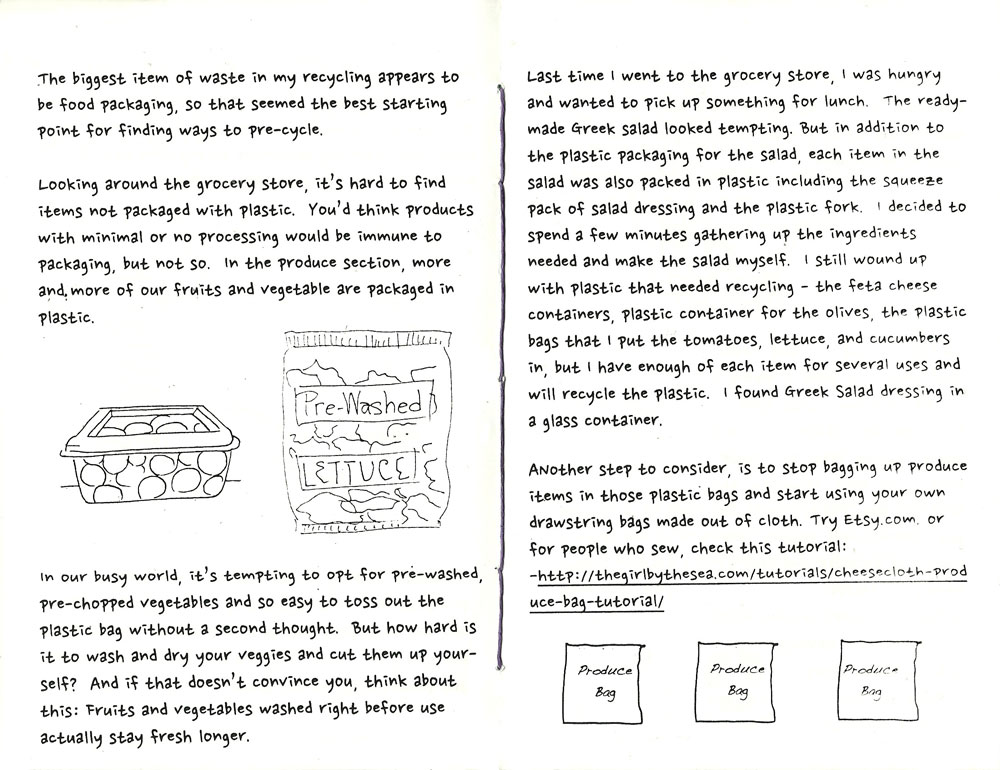 The biggest item of waste in my recycling appears to
be food packaging, so that seemed the best starting
point for finding ways to pre-cycle.
Looking around the grocery store, it's hard to find
items not packaged with plastic. You'd think products
with minimal or no processing would be immune to
packaging, but not so. In the produce section, more
and more of our fruits and vegetable are packaged in
plastic.
Pre-Washed
LETTUCE
In our busy world, it's tempting to opt for pre-washed,
pre-chopped vegetables and so easy to toss out the
plastic bag without a second thought. But how hard is
it to wash and dry your veggies and cut them up your-
self? And if that doesn't convince you, think about
this: Fruits and vegetables washed right before use
actually stay fresh longer.
Last time I went to the grocery store, I was hungry
and wanted to pick up something for lunch. The ready-
made Greek salad looked tempting. But in addition to
the plastic packaging for the salad, each item in the
salad was also packed in plastic including the squeeze
pack of salad dressing and the plastic fork. I decided to
spend a few minutes gathering up the ingredients
needed and make the salad myself. I still wound up
with plastic that needed recycling - the feta cheese
containers, plastic container for the olives, the plastic
bags that I put the tomatoes, lettuce, and cucumbers
in, but I have enough of each item for several uses and
will recycle the plastic. I found Greek Salad dressing in
a glass container.
Another step to consider, is to stop bagging up produce
items in those plastic bags and start using your own
drawstring bags made out of cloth. Try Etsy.com. or
for people who sew, check this tutorial:
-http://thegirlbythesea.com/tutorials/cheesecloth-prod
uce-bag-tutorial/
Produce
Bag
Produce
Bag
Produce
Bag